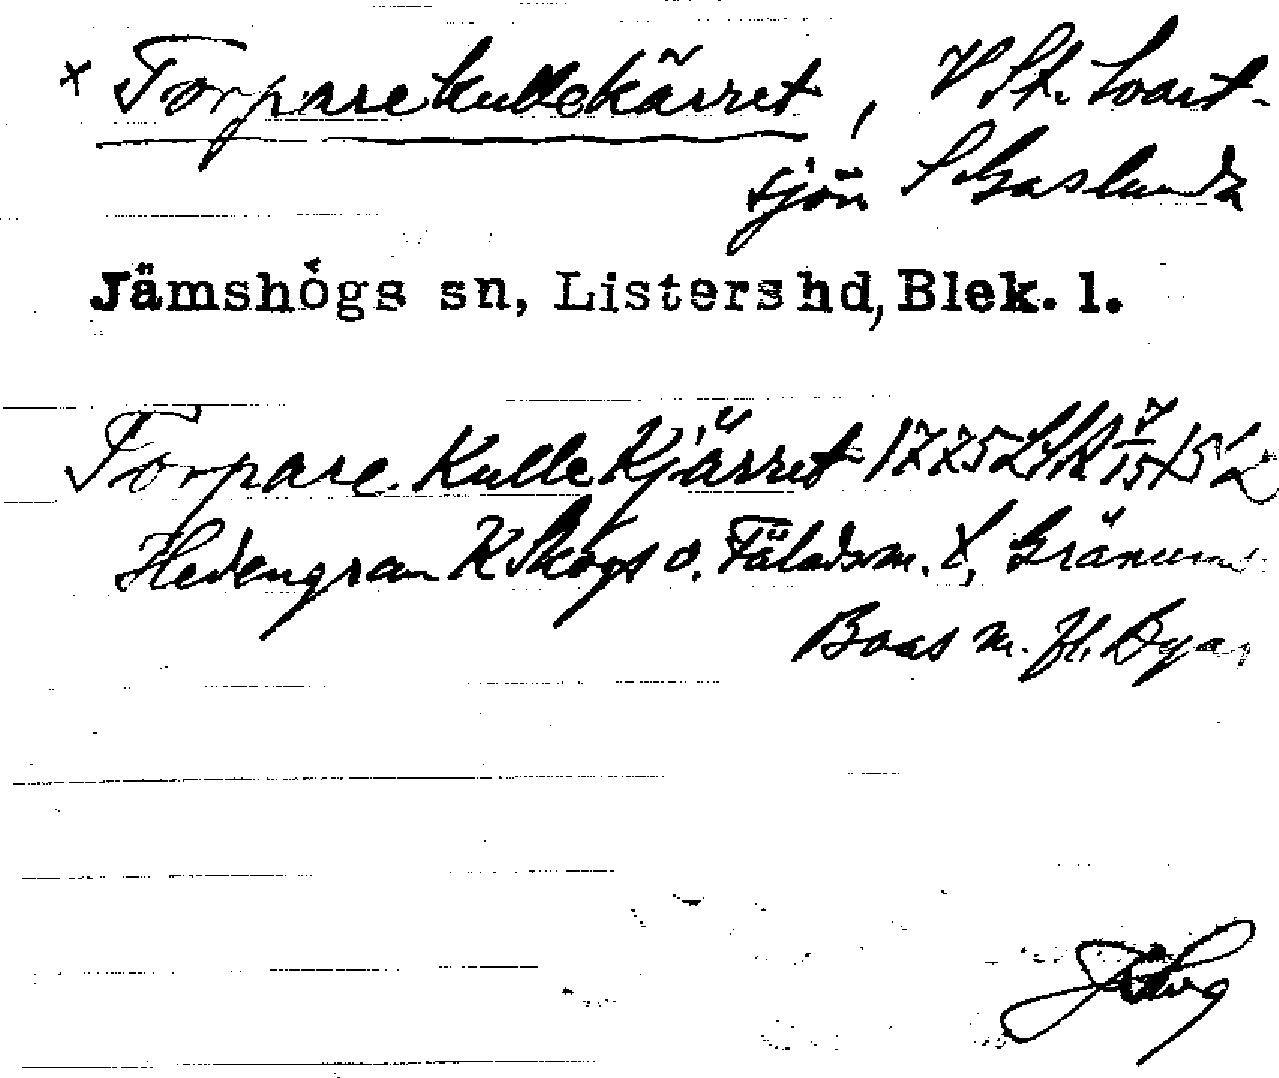 x Torparekullekärret, V St. Svart-
sjön S Gaslunda
Jämshögs sn, Listers hd, Blek. l.
Torpare Kulle Kjärret 1775
Hedengran K Skogs o. Fäladsm. t, Gränum
Boas m. fl. Byar